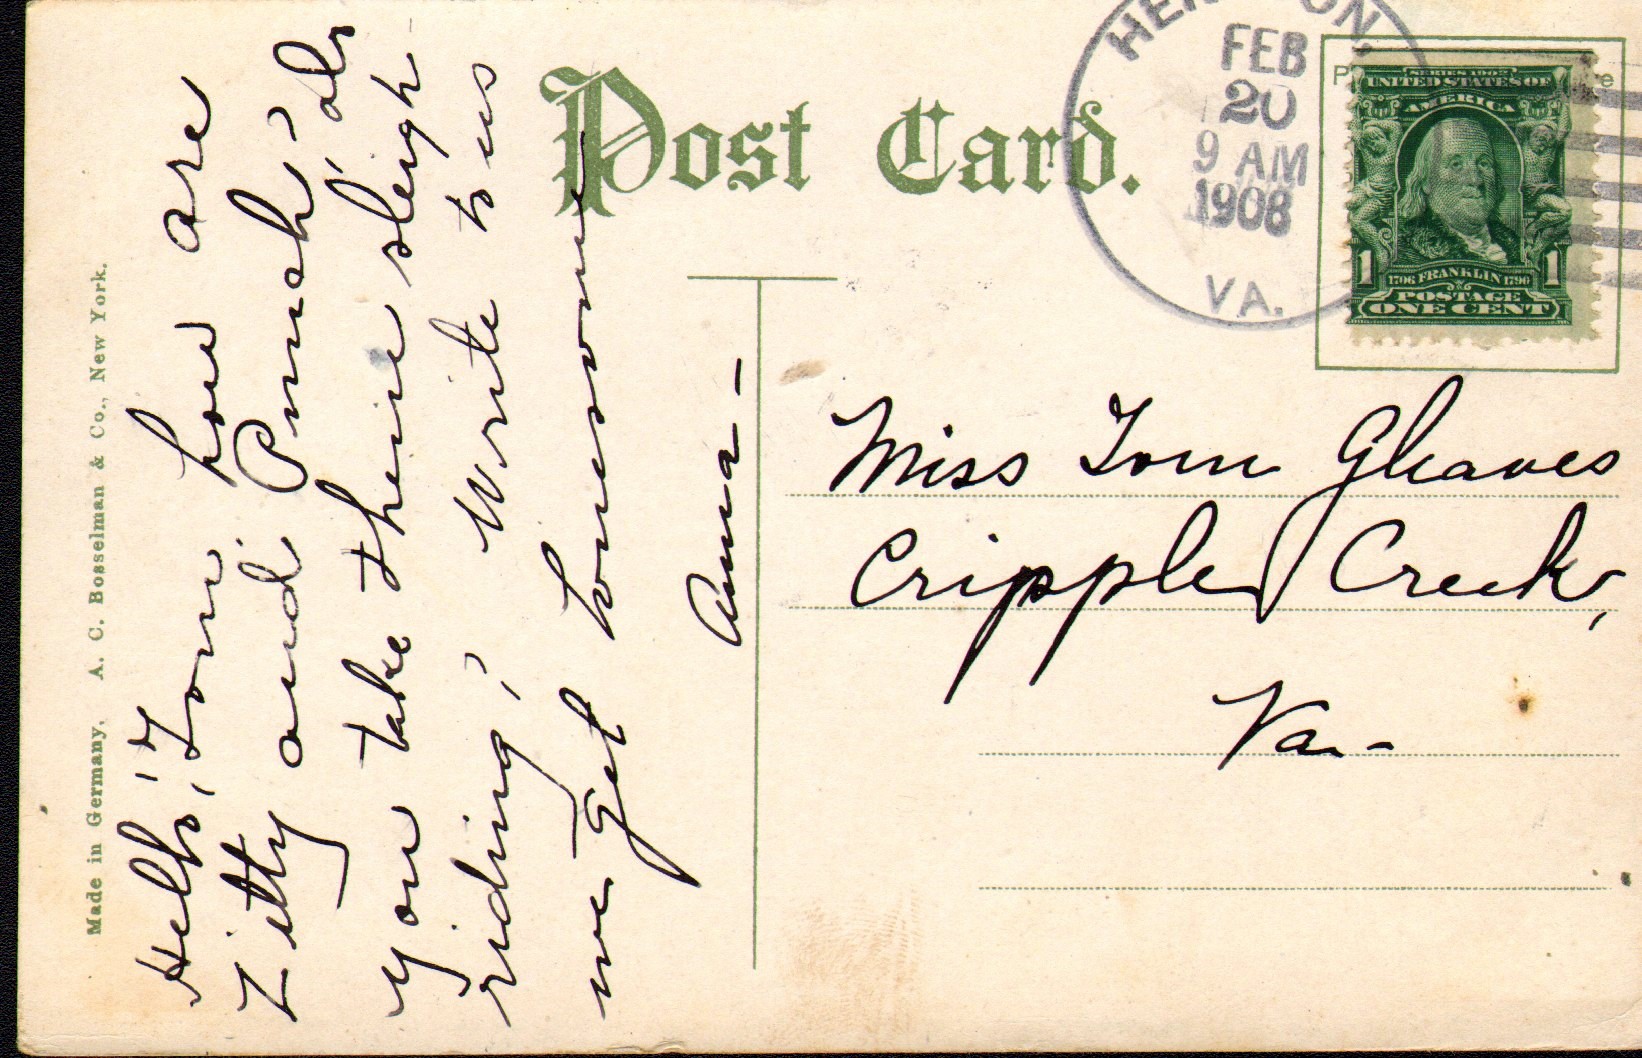 Post Card.
HERNDON,
FEB
20
9 AM
1908
VA.
SERIES 1902
UNITED STATES OF
AMERICA
1706 FRANKLIN 1790
1 1
POSTAGE
ONE CENT
Made in Germany, A. C. Bosselman & Co., New York.
Hello, Tom, how are
and
you take sleigh
riding, Write to us
we get lonesome
Anna -
Miss Tom Gleaves
Cripple Creek,
Va.-